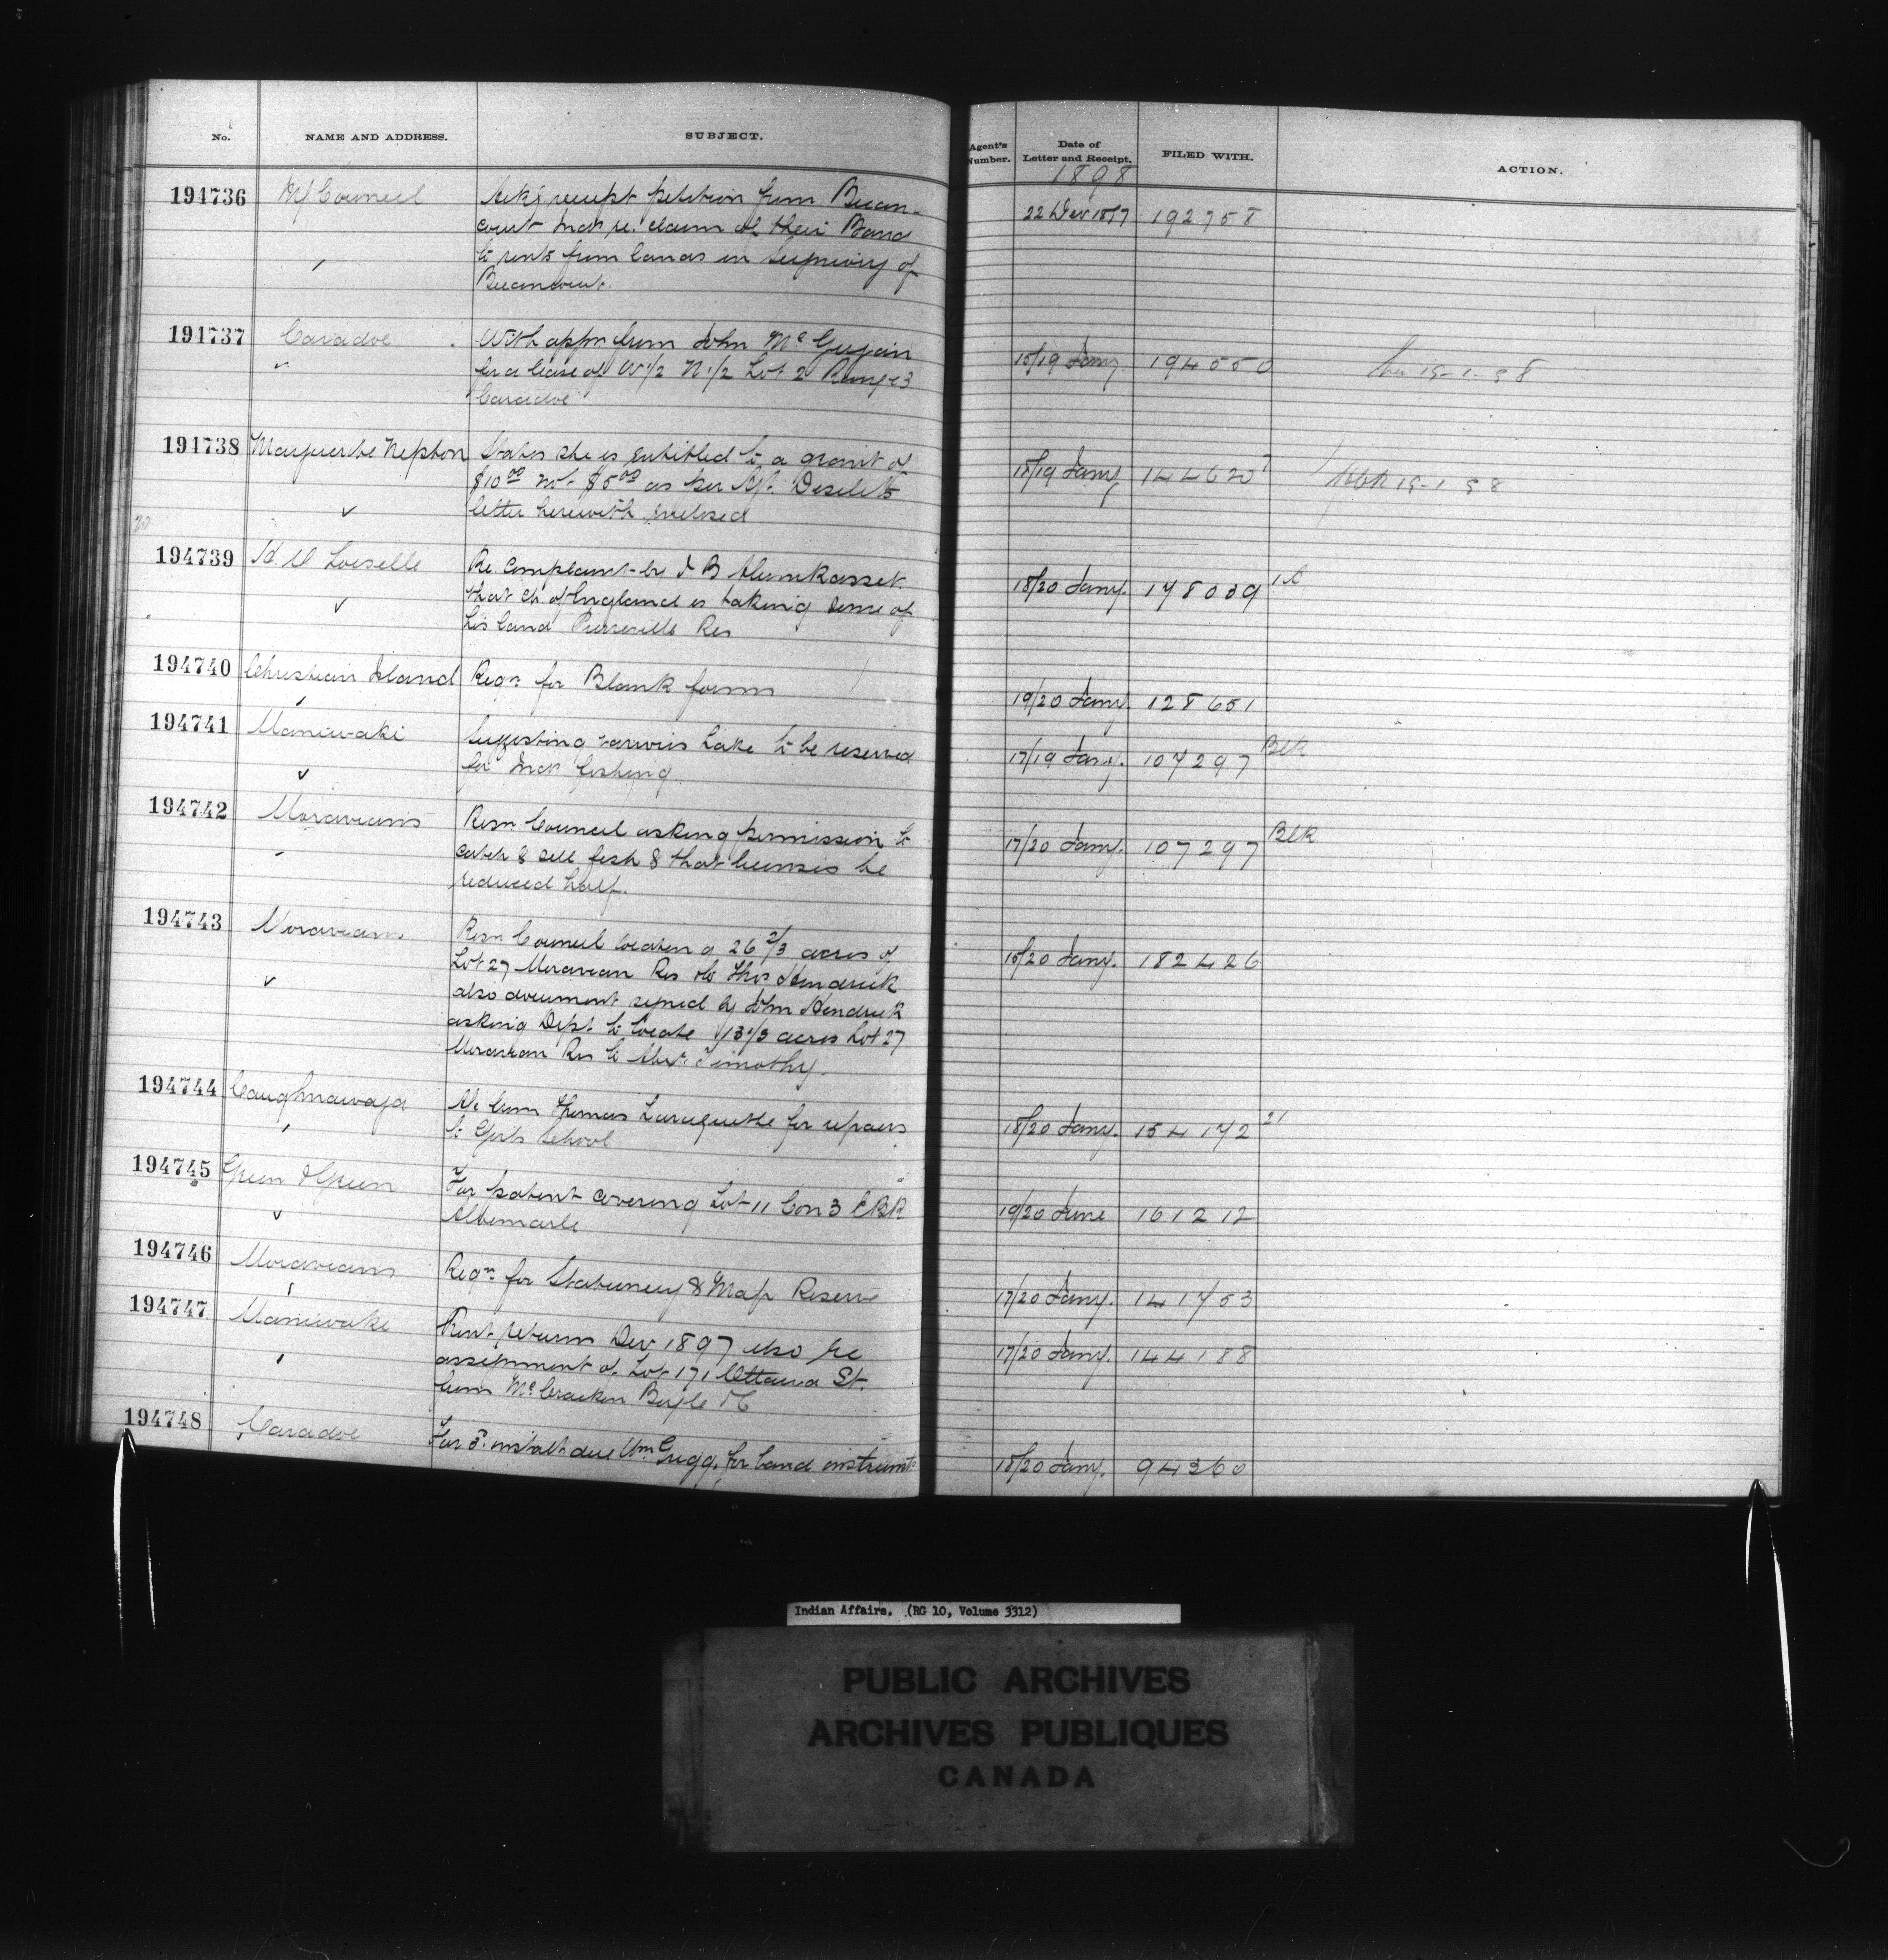 No. NAME AND ADDRESS. SUBJECT. Agent's Number. Date of Letter and Receipt. FILED WITH. ACTION.
1898
194736 Council Ack's receipt petition from Becan-
court Inds re. claim of their Band 22 Dec 1897 192758
to rents from lands in Seigniory of
Becancourt.
194737 Caradoc With appn from John McGugain
for a lease of W 1/2 N 1/2 Lot 2 Range 3 15/19 Jany 194550
Caradoc
194738 Marguerite Nepton States she is entitled to a grant of
$10.00 not $5.00 as per Agt. Desilets 18/19 Jany 144620
letter herewith enclosed
20
194739 Loiselle Re. Complaint by
that Ch. of England is taking some of 18/20 Jany. 178039
his land Pierreville Res
194740 Christian Island Reqn for Blank forms 19/20 Jany. 128651
194741 Maniwaki Suggesting various Lake to be reserved
for Indn fishing. 17/19 Jany. 107297 Blk
194742 Moravians Resn Council asking permission to
catch & sell fish & that licenses be 17/20 Jany. 107297 Blk
reduced half.
194743 Moravians Resn Council locating 26 2/3 acres of
Lot 27 Moravian Res to Thos Hendrick 15/20 Jany. 182426
also document signed by John Hendrick
asking Dept. to locate 13 1/3 acres Lot 27
Moravian Res to Timothy.
194744 Caughnawaga A/c from Thomas for repairs
to Girls School 18/20 Jany. 154172 21
194745 Green & Green For patent covering Lot 11 Con 3 EBR
Albemarle 19/20 June 161212
194746 Moravians Reqn for Stationery & Map Reserve 17/20 Jany. 141753
194747 Maniwaki Rent returns Dec 1897 also re
assignment of Lot 171 Ottawa St. 17/20 Jany. 144188
from McCracken
194748 Caradoc For 3rd instalt due Wm Gregg. for band instrumts 18/20 Jany. 94360
Indian Affairs. (RG 10, Volume 3312)
PUBLIC ARCHIVES
ARCHIVES PUBLIQUES
CANADA